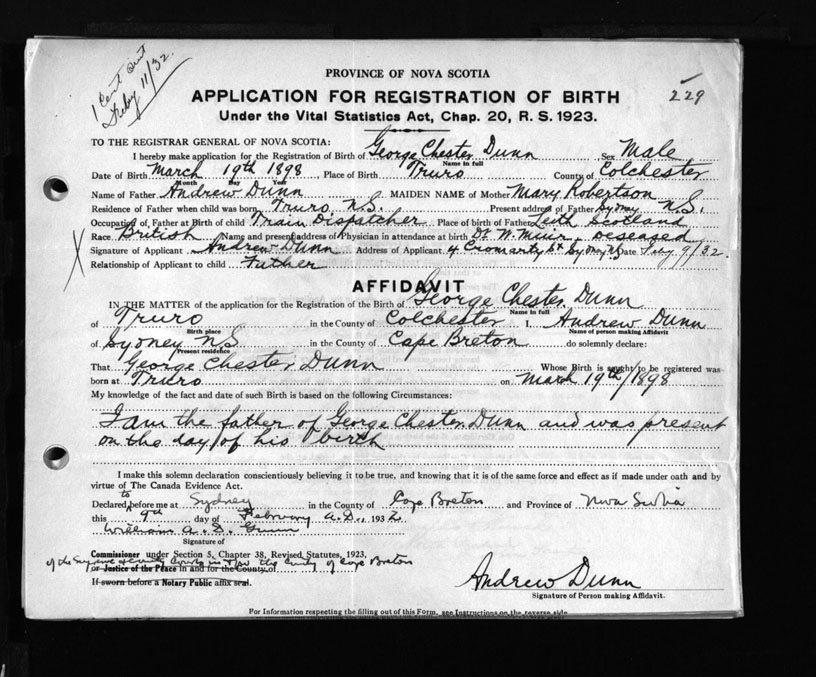 1 Cert sent
Feby 11/32.
229
PROVINCE OF NOVA SCOTIA
APPLICATION FOR REGISTRATION OF BIRTH
Under the Vital Statistics Act, Chap. 20, R. S. 1923.
TO THE REGISTRAR GENERAL OF NOVA SCOTIA:
I hereby make application for the Registration of Birth of George Chester Dunn Sex Male
Name in full
Date of Birth March 19th 1898 Place of Birth Truro County of Colchester
Month Day Year
Name of Father Andrew Dunn MAIDEN NAME of Mother Mary Robertson
Residence of Father when child was born Truro N.S. Present address of Father Sydney N.S.
Occupation of Father at Birth of child Train Dispatcher Place of birth of Father Leith Scotland
Race British Name and present address of Physician in attendance at birth Dr W. Muir, Deseased
X Signature of Applicant Andrew Dunn Address of Applicant 4 Cromarty St Sydney Date Feby 9/32.
Relationship of Applicant to child Father
AFFIDAVIT
IN THE MATTER of the application for the Registration of the Birth of George Chester Dunn
Name in full
of Truro in the County of Colchester I, Andrew Dunn
Birth place Name of person making Affidavit
of Sydney N.S. in the County of Cape Breton do solemnly declare:
Present residence
That George Chester Dunn Whose Birth is sought to be registered was
born at Truro on March 19th/1898
My knowledge of the fact and date of such Birth is based on the following Circumstances:
I am the father of George Chester Dunn and was present
on the day of his birth
I make this solemn declaration conscientiously believing it to be true, and knowing that it is of the same force and effect as if made under oath and by
virtue of The Canada Evidence Act.
Declared before me at Sydney in the County of Cape Breton and Province of Nova Scotia
this 9th day of February A.D., 1932
William A. D. Gunn
Signature of
Commissioner under Section 5, Chapter 38, Revised Statutes, 1923,
of the Supreme & County Courts in & for the County of Cape Breton
or Justice of the Peace in and for the County of
If sworn before a Notary Public affix seal.
Andrew Dunn
Signature of Person making Affidavit.
For Information respecting the filling out of this Form, see Instructions on the reverse side